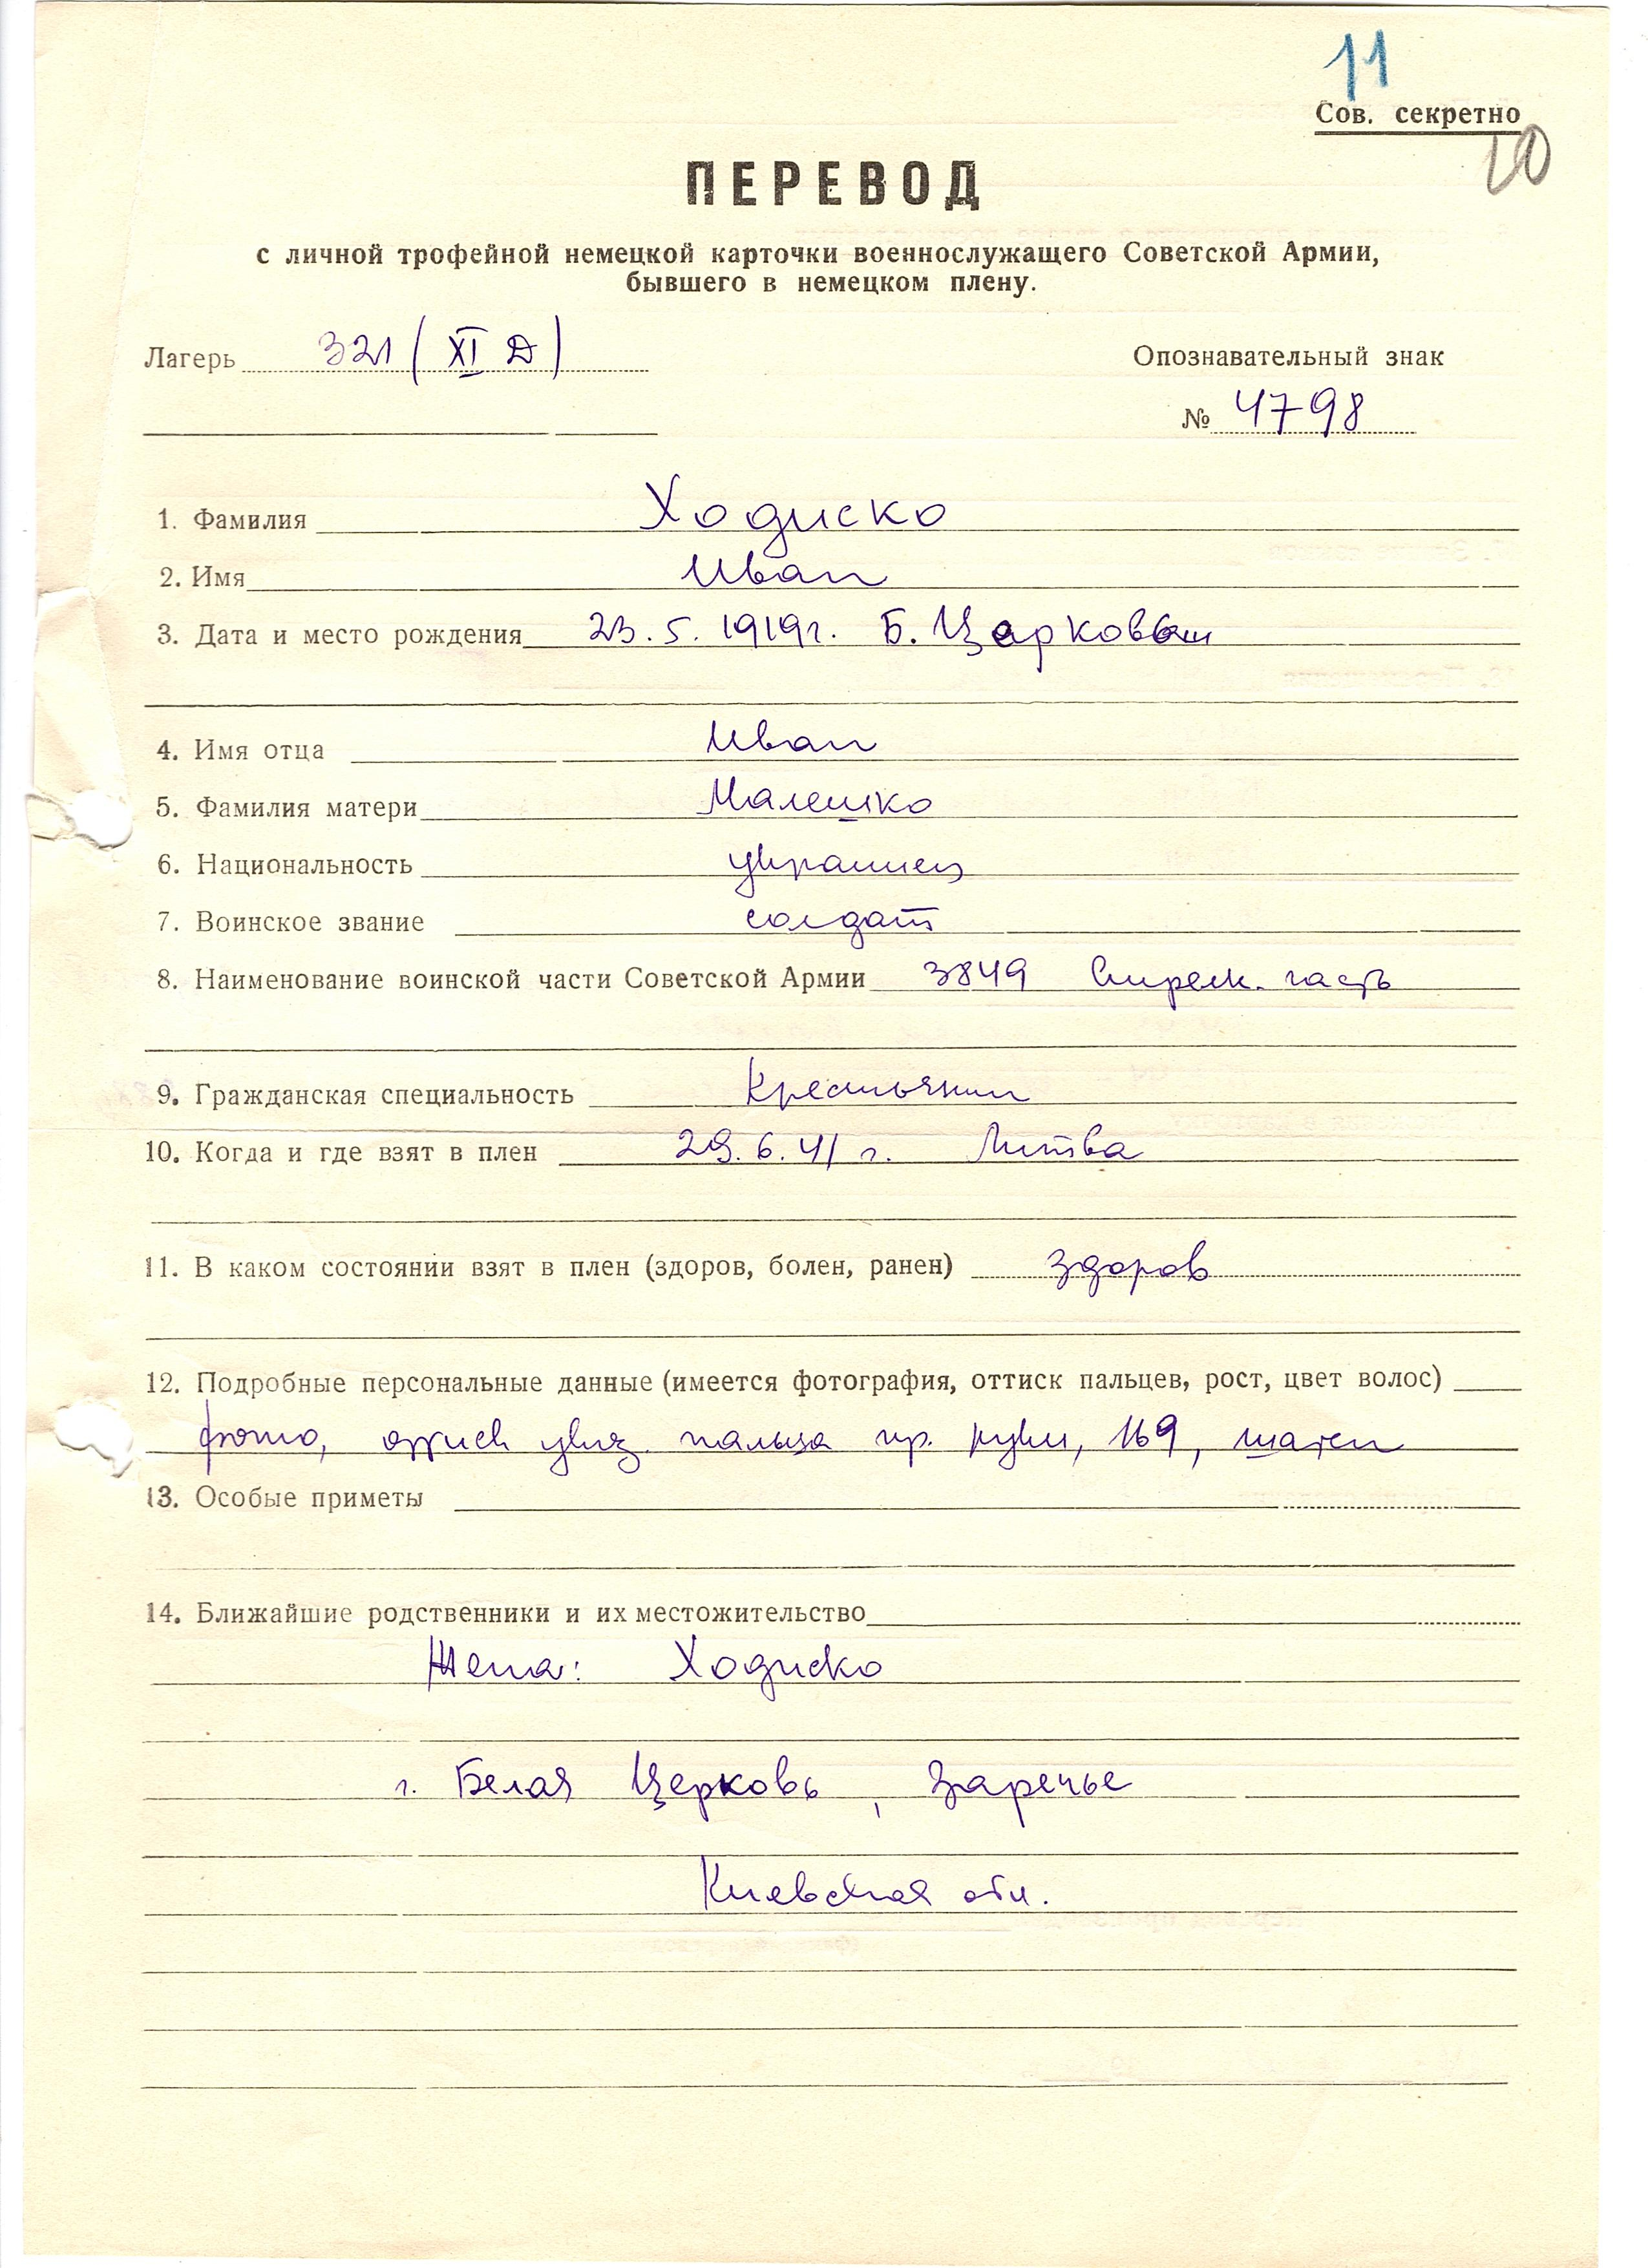 11
Сов. секретно
10
ПЕРЕВОД
с личной трофейной немецкой карточки военнослужащего Советской Армии,
бывшего в немецком плену.
Лагерь 321 (XI Д)
Опознавательный знак
№ 4798
1. Фамилия Ходиско
2. Имя Иван
3. Дата и место рождения 23.5.1919г. Б.
4. Имя отца Иван
5. Фамилия матери Малешко
6. Национальность украинец
7. Воинское звание солдат
8. Наименование воинской части Советской Армии 3849 стрелк. часть
9. Гражданская специальность Крестьянин
10. Когда и где взят в плен 29.6.41 г. Литва
11. В каком состоянии взят в плен (здоров, болен, ранен) здоров
12. Подробные персональные данные (имеется фотография, оттиск пальцев, рост, цвет волос)
фото, оттиск указ. пальца пр. руки, 169, шатен
13. Особые приметы
14. Ближайшие родственники и их местожительство
Жена: Ходиско
г. Белая Церковь, Заречье
Киевская обл.